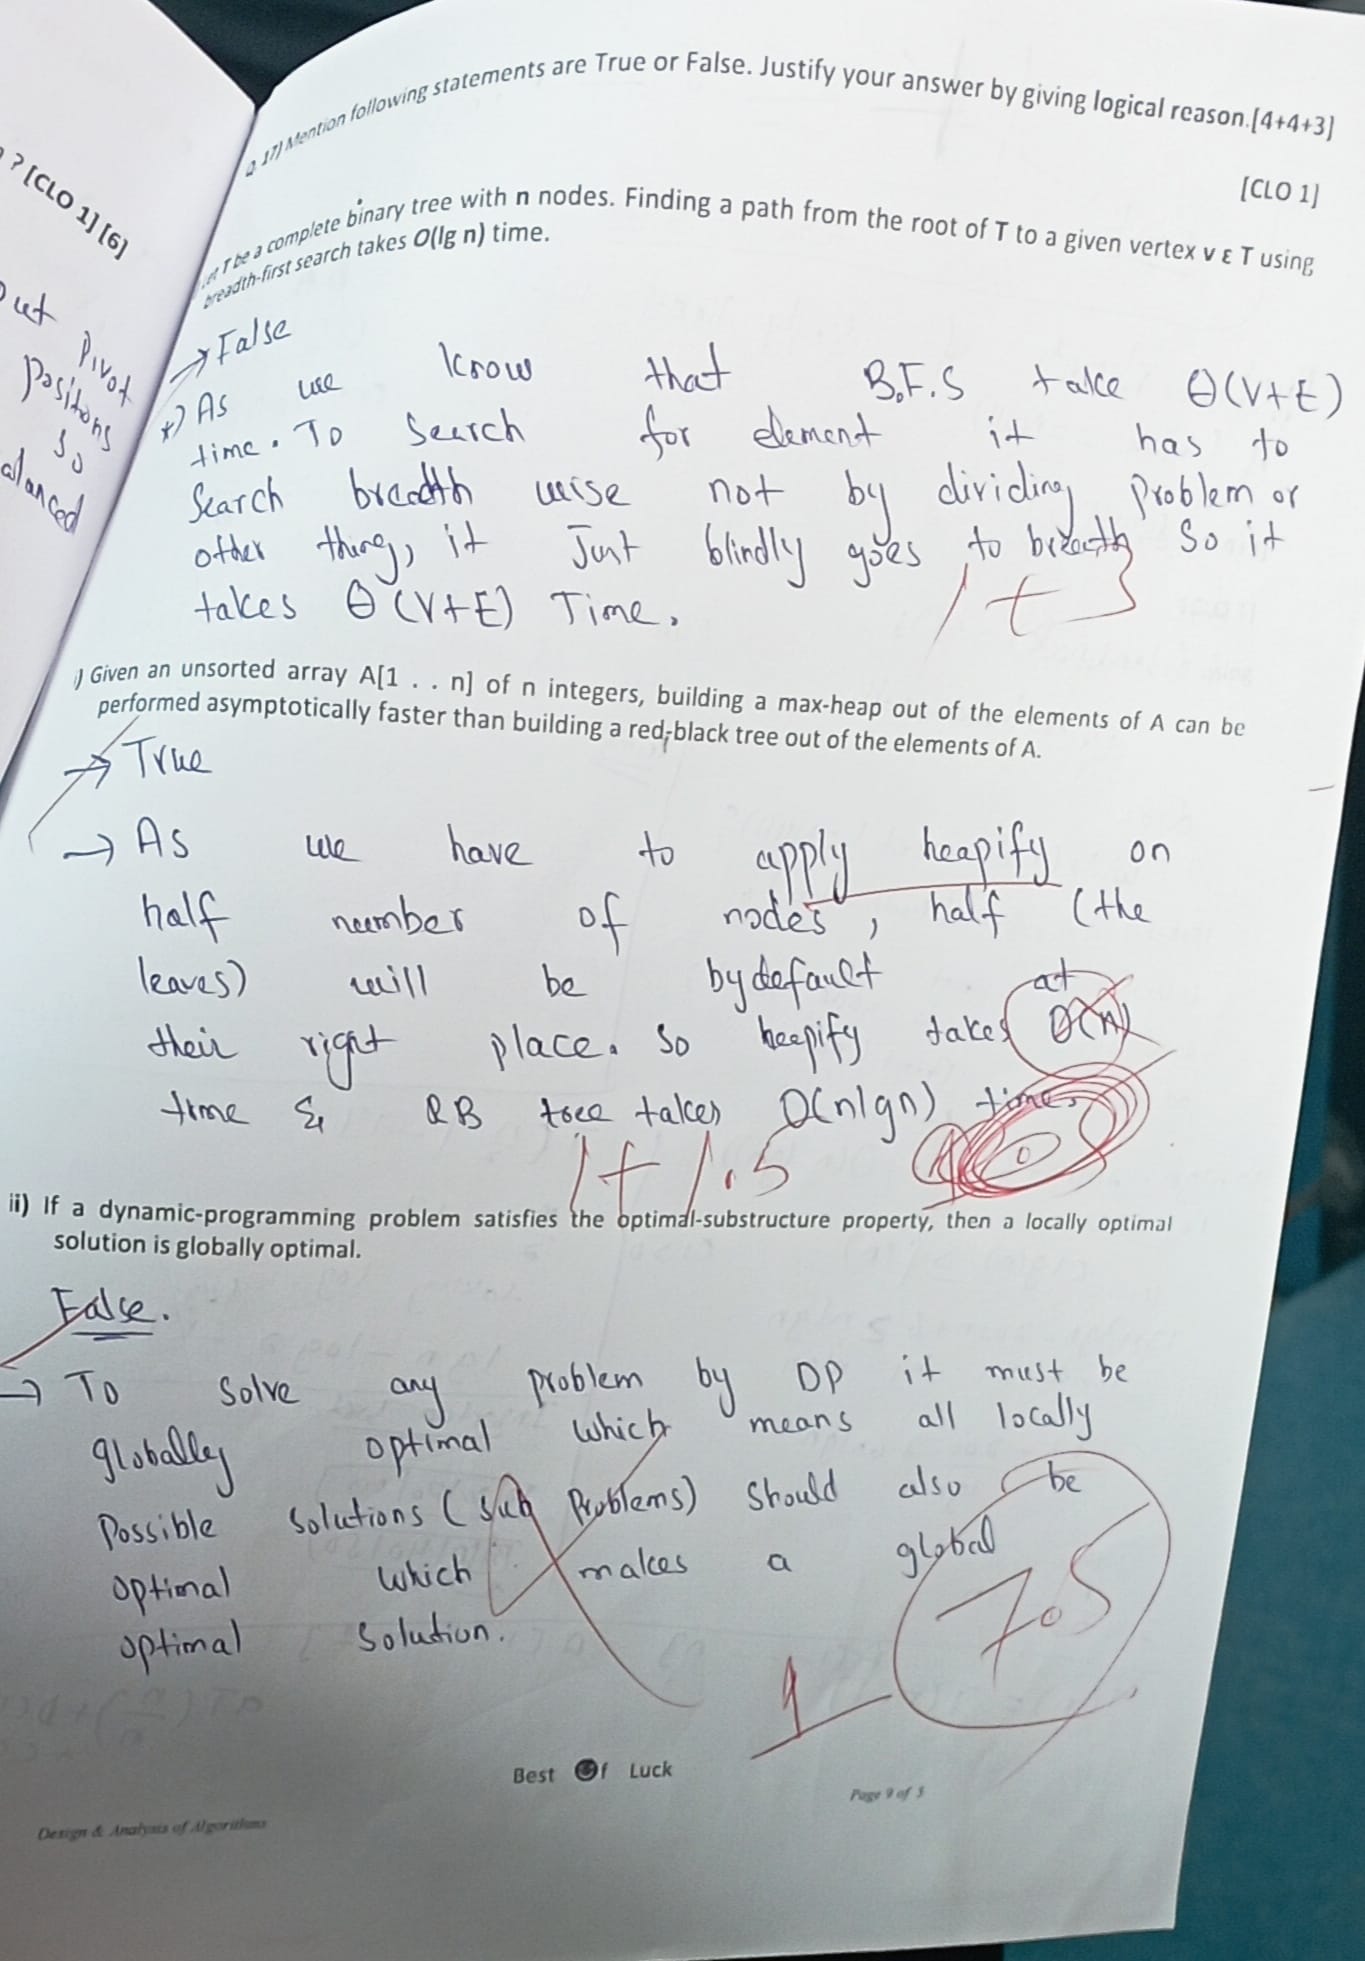 Q. 17) Mention following statements are True or False. Justify your answer by giving logical reason.[4+4+3]
[CLO 1]
? [CLO 1] [6]
T be a complete binary tree with n nodes. Finding a path from the root of T to a given vertex v ε T using
breadth-first search takes O(lg n) time.
out Pivot
positions
so
alanced
→ False
*) As we know that B.F.S take Θ(V+E)
time. To Search for element it has to
Search breadth wise not by dividing problem or
other thing, it Just blindly goes to breadth So it
takes Θ(V+E) Time.
1 + 3
i) Given an unsorted array A[1 . . n] of n integers, building a max-heap out of the elements of A can be
performed asymptotically faster than building a red-black tree out of the elements of A.
→ True
→ As we have to apply heapify on
half number of nodes, half (the
leaves) will be bydefault at
their right place. So heepify takes O(n)
time & RB tree takes O(nlgn) time.
1 + 1.5
ii) If a dynamic-programming problem satisfies the optimal-substructure property, then a locally optimal
solution is globally optimal.
False.
→ To solve any problem by DP it must be
globally optimal which means all locally
Possible solutions (sub Problems) should also be
optimal which makes a global
optimal solution.
7.5
1
Best Of Luck
Page 9 of 5
Design & Analysis of Algorithms